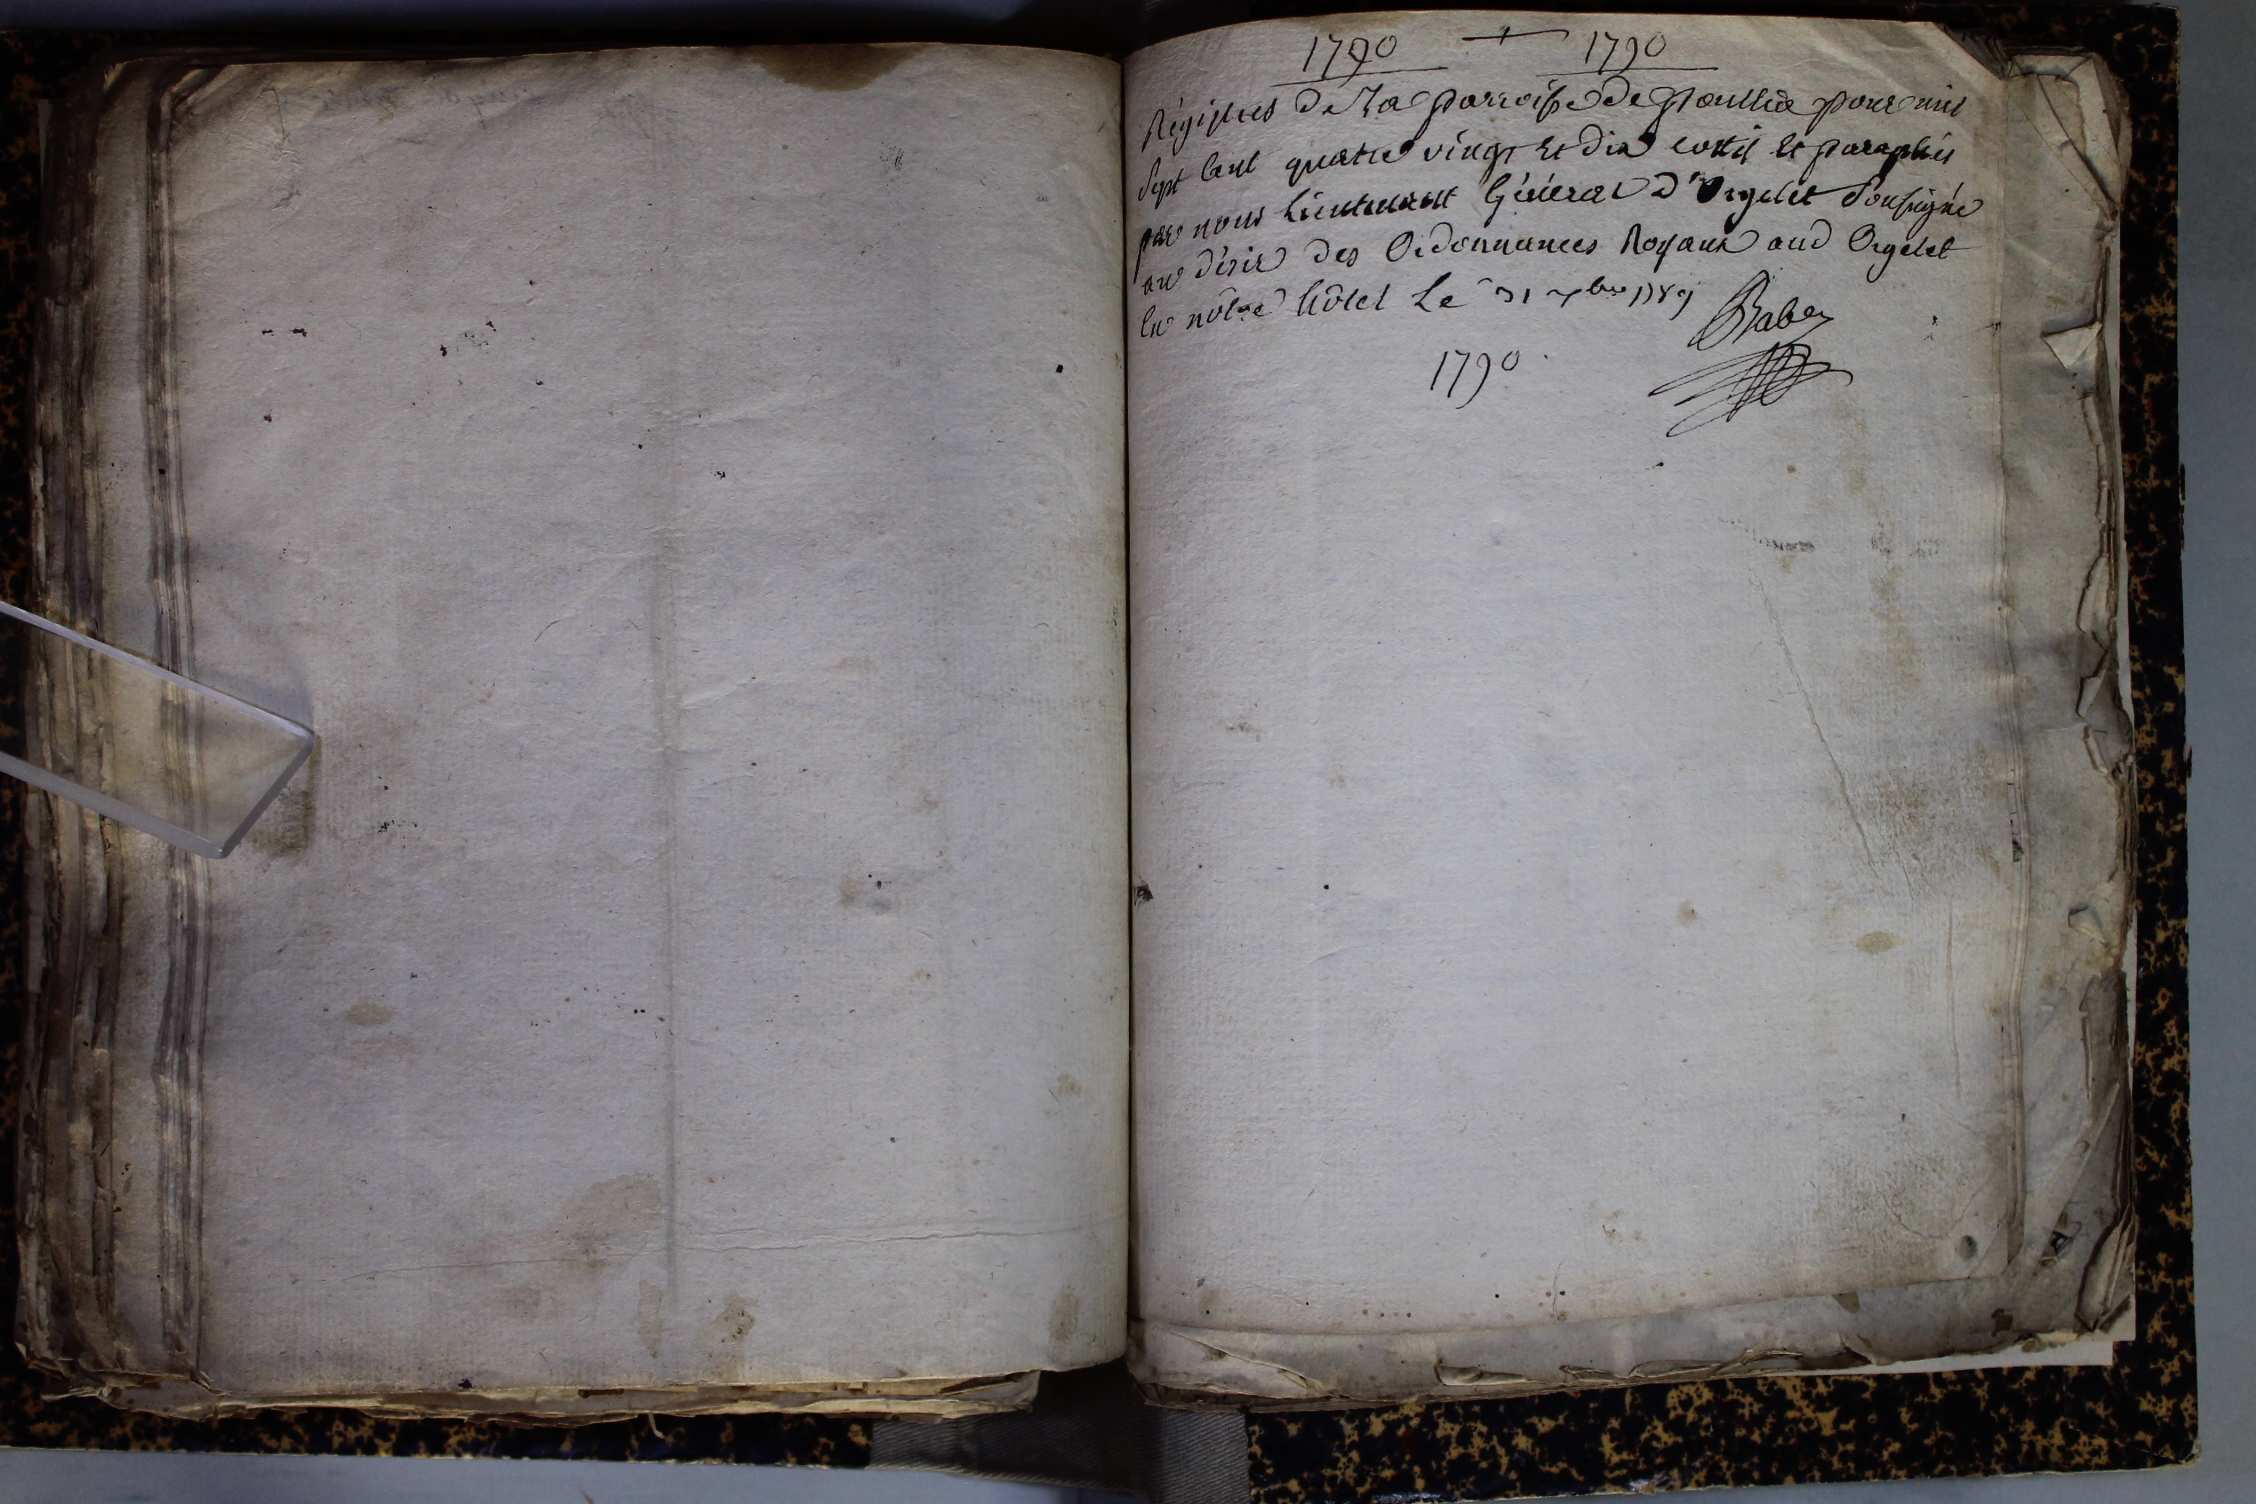 1790 + 1790
Régistres de La parroisse de pour mil
Sept Cent quatre vingt et dix cottés et paraphés
par nous Lieutenant Général d'Orgelet Soussigné
au désir des Ordonnances Royaux aud Orgelet
En nôtre hôtel Le 31 Xbre 1789 Babey
1790